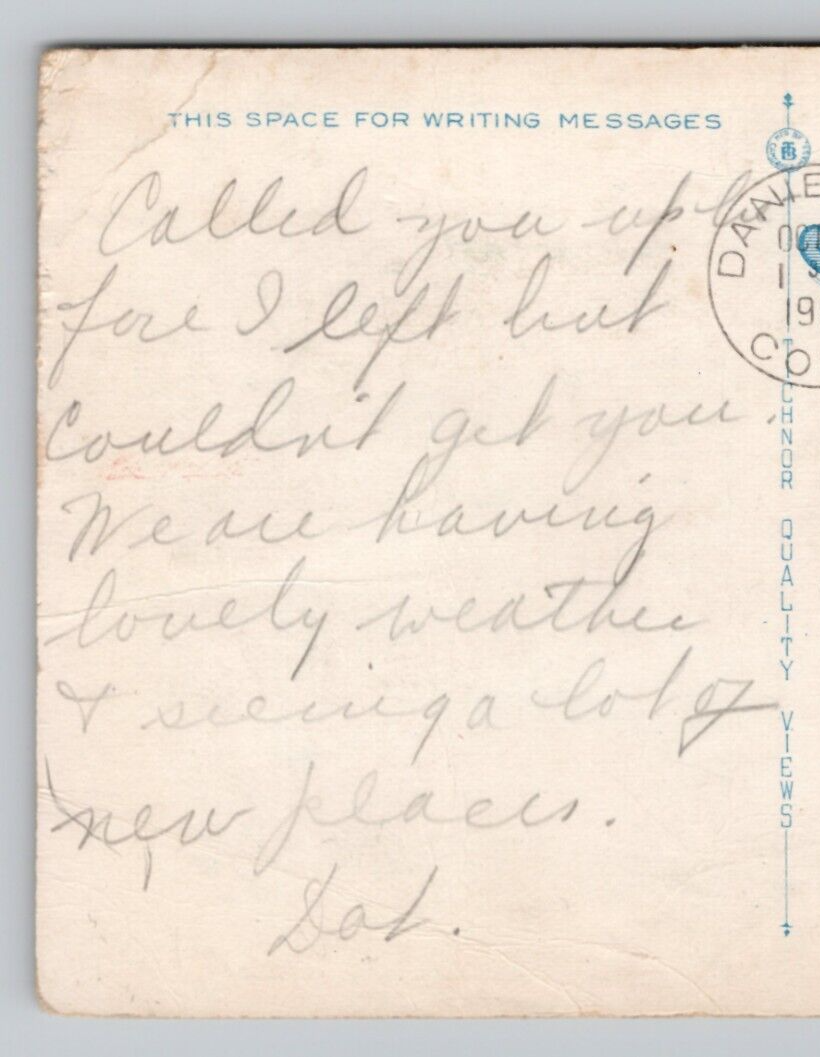 THIS SPACE FOR WRITING MESSAGES
Called you up be
fore I left but
couldn't get you.
We are having
lovely weather
& seeing a lot of
new places.
Dot.
DANIE
OC
1
19
CO
TICHNOR QUALITY VIEWS